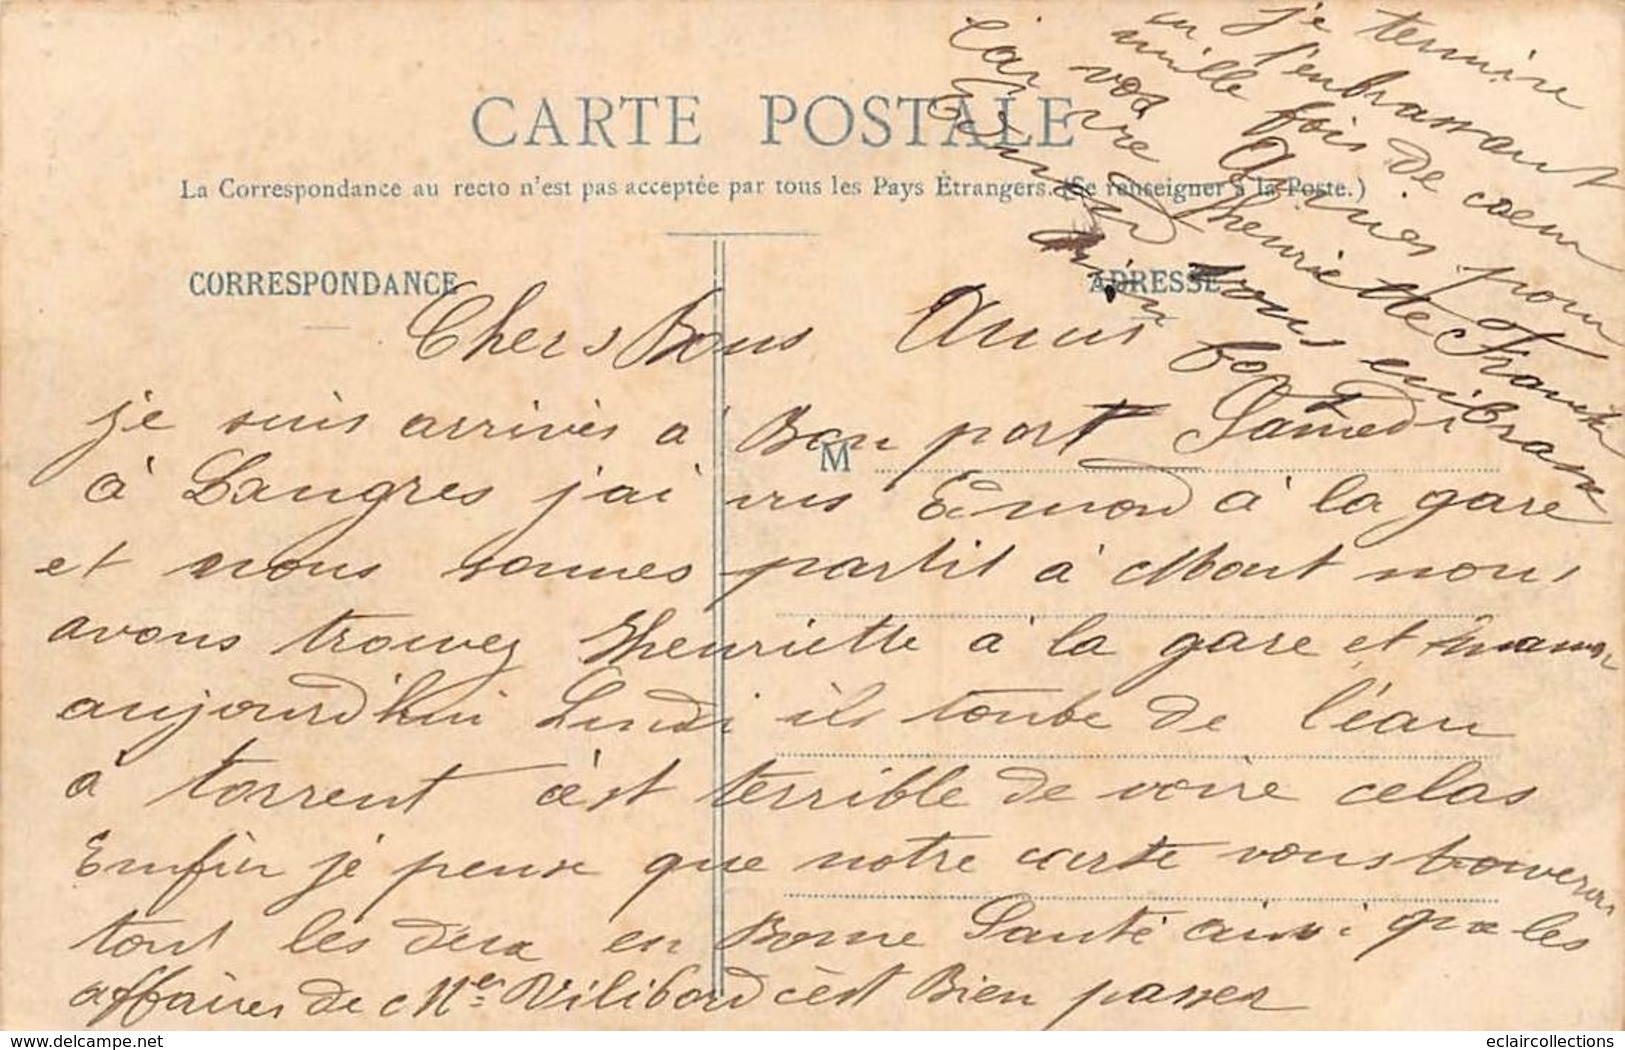 CARTE POSTALE
La Correspondance au recto n'est pas acceptée par tous les Pays Étrangers. (Se renseigner à la Poste.)
CORRESPONDANCE
ADRESSE
M
Chers Bons Amis
je suis arrivés a Bon port Samedi
à Langres j'ai vus Edmond à la gare
et nous sommes partit à Mont nous
avons trouvez Henriette à la gare et maman
aujourd'hui Lundi ils tonbe de l'éau
a torrent c'est terrible de voire celas
Enfin je pense que notre carte vous trouveras
tout les deux en Bonne Santé ainsi que les
affaires de Me Vilibord c'est Bien passer
je termine
en l'enbrassant
mille fois de coeur
vos Amies pour
la vie Henriette Franck
vous enibrasse
www.eclaircollections.com
eclaircollections